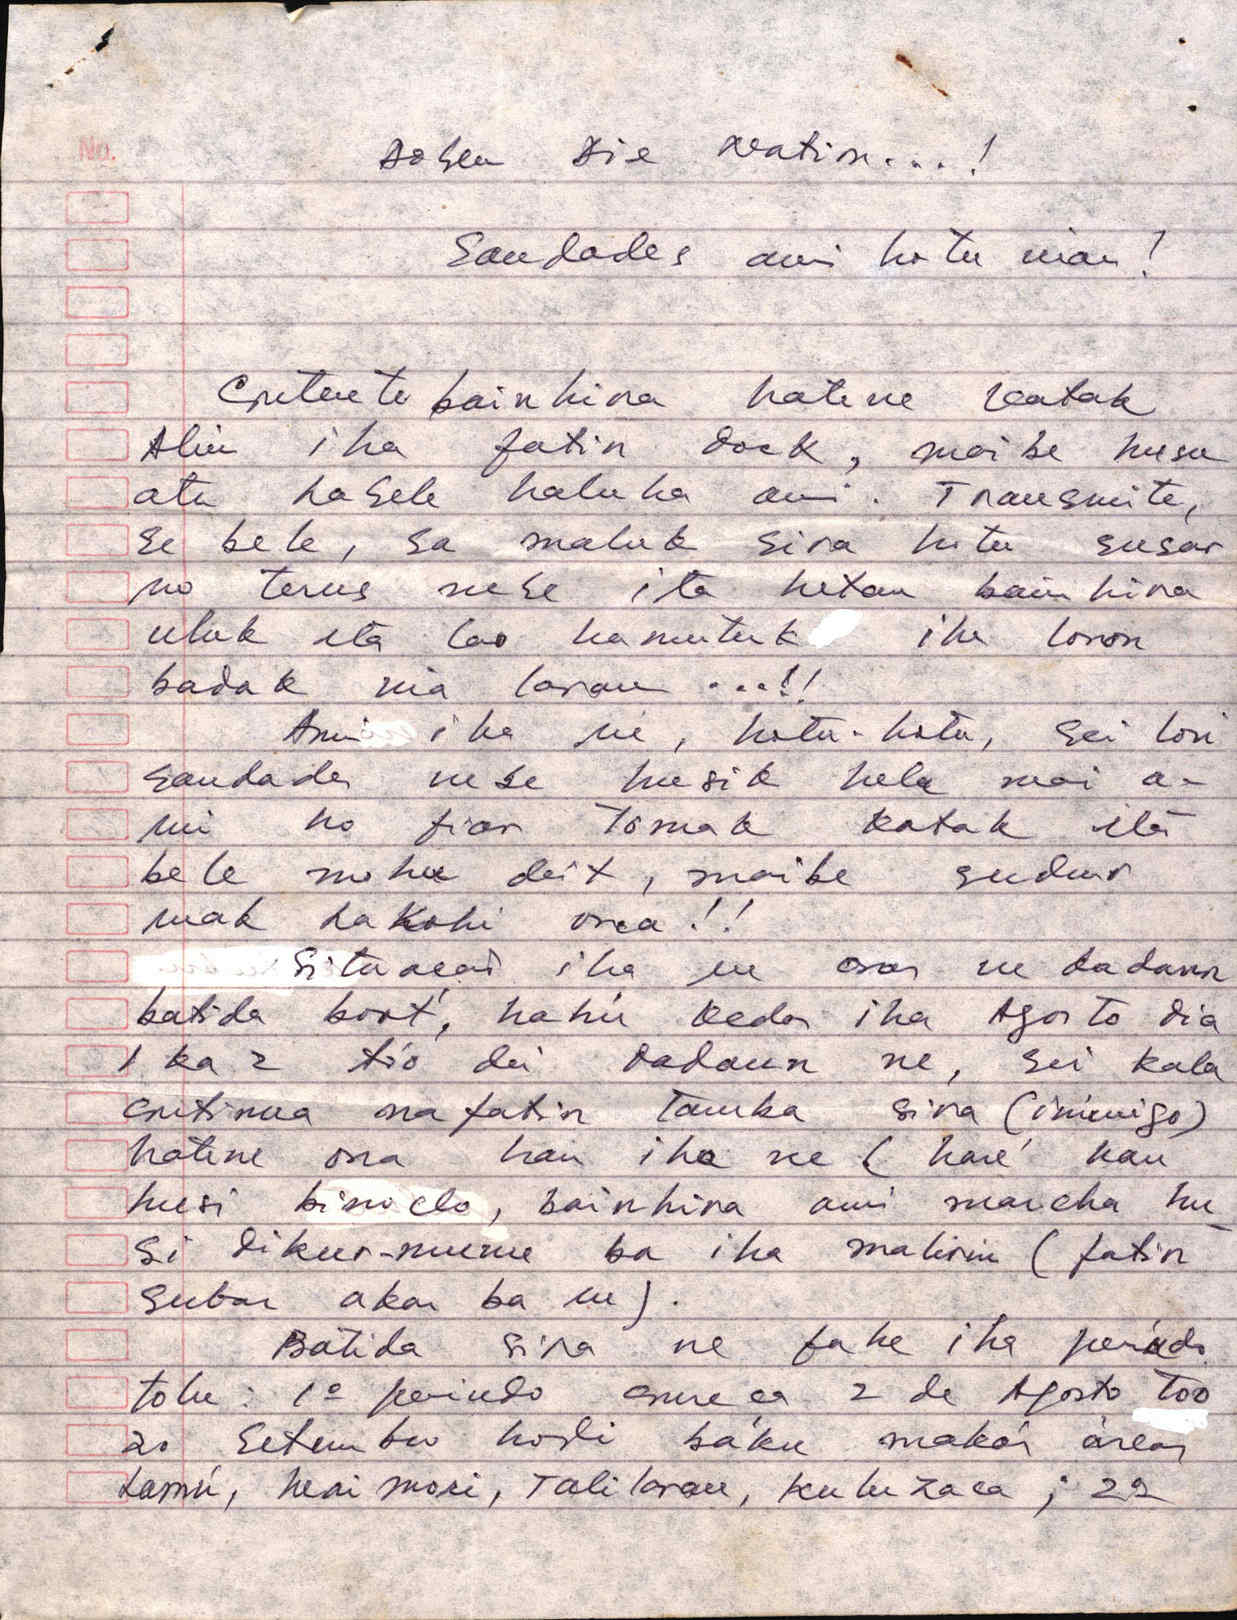 No.
Saudades ami hotu nian!
Contente bainhira hatene katak
Alin iha fatin dook, maibe husu
atu labele haluha ami. Transmite,
se bele, ba maluk sira hotu susar
no terus nebe ita hetan bainhira
uluk ita lao hamutuk iha loron
badak nia laran ...!!
Ami iha ne, hotu-hotu, sei lori
saudades nebe husik hela mai a-
mi ho fiar tomak katak ita
bele mohu deit, maibe sudur
mak lakohi ona!!
Situação iha ne oras ne dadaun
batida boot, hahú kedas iha Agosto dia
1 ka 2 tó dei dadaun ne, sei kala
continua nafatin tamba sira (inimigo)
hatene ona hau iha ne (haré hau
husi binoclo, bainhira ami marcha hu-
si dikur-mumu ba iha malirin (fatin
subar akar ba ne).
Batida sira ne fahe iha período
tolu: 1º período comeca 2 de Agosto too
20 Setembro hodi báku makás áreas
Lamú, heni mori, Talilaran, Kuluzaca; 22